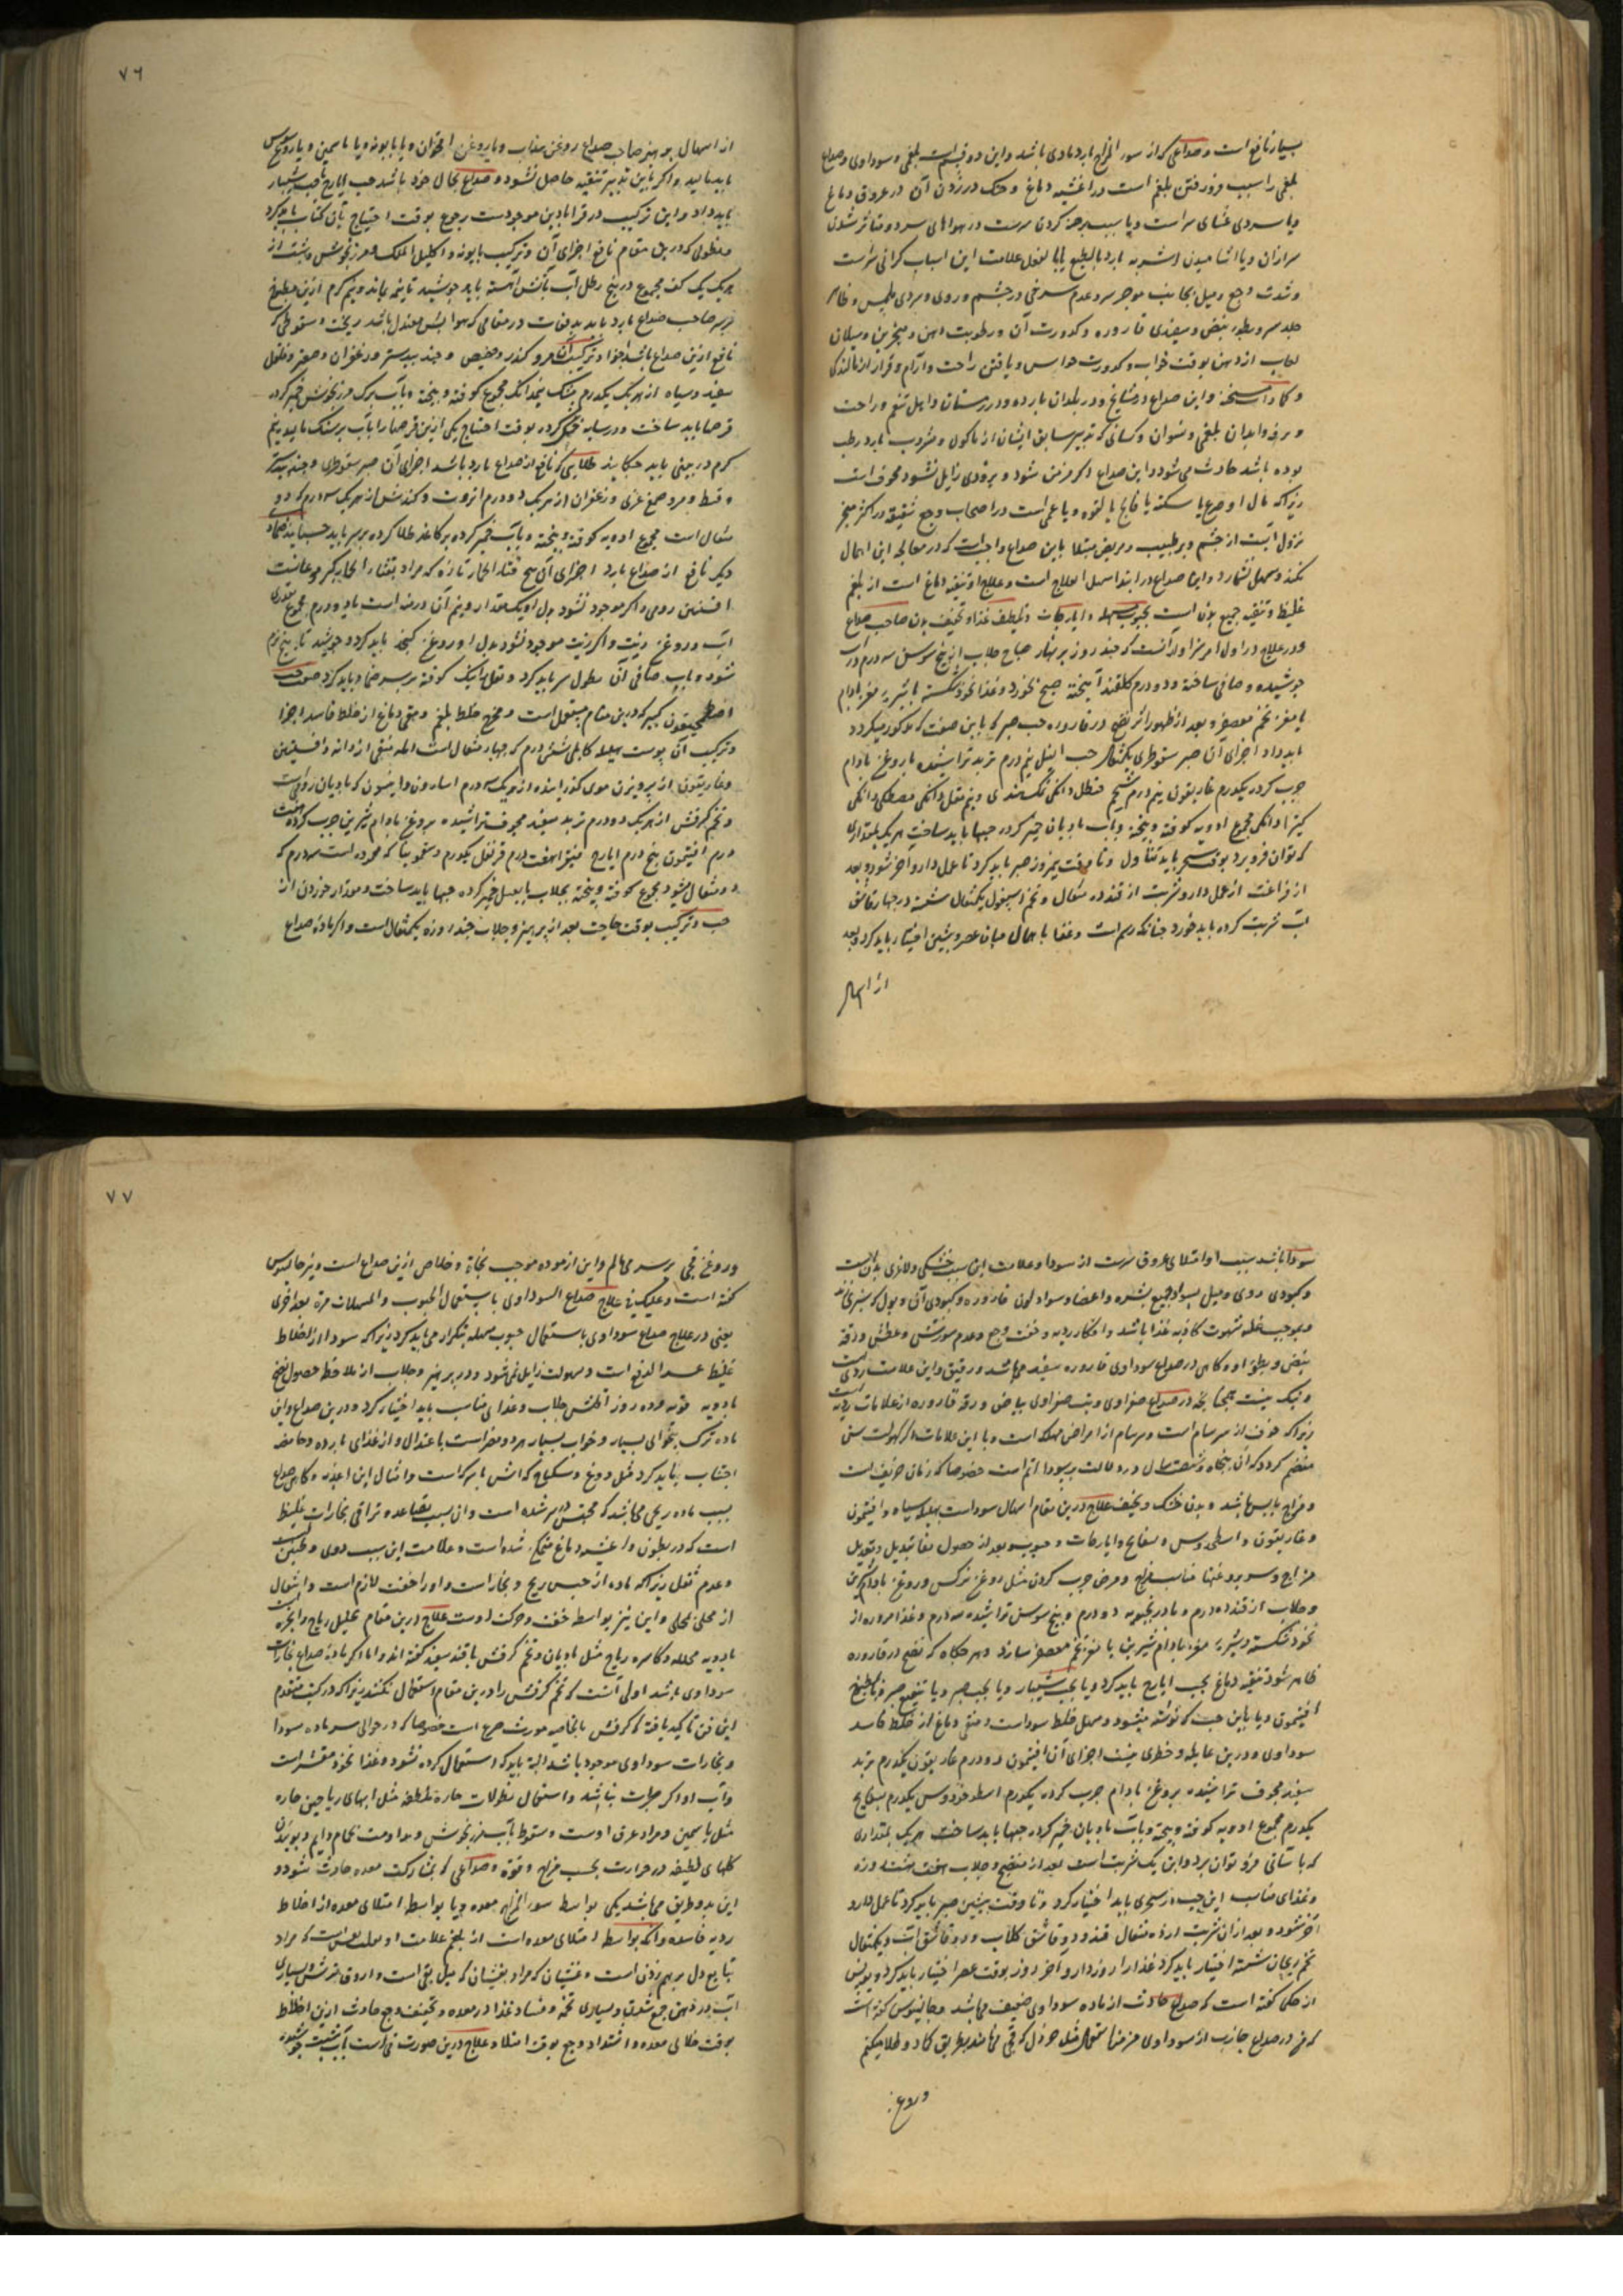 بسیار نافع است و صداعی که از سوء المزاج بارد مادی باشد و این دو قسم است بلغمی و سوداوی و صداع
بلغمی را سبب فرو رفتن بلغم است در اغشیه دماغ و در عروق دماغ
و یا سردی غشای سر است و یا سبب برهنه کردن سرست در هواهای سرد و متاثر شدن
سر ازان و یا آشامیدن اشربه بارد بالطبع یا بالفعل علامت این اسباب کرانی سرست
و شدت وجع و میل بجانب موخر سر و عدم سرخی در چشم و روی و سردی ملمس و ظاهر
جلد سر و بطوء نبض و سفیدی قاروره و کدورت آن و رطوبت دهن و منخرین و سیلان
لعاب از دهن بوقت خواب و کدورت حواس و یافتن راحت و آرام و قرار از
و کمادات مسخنه و این صداع در مشایخ و در بلدان بارده و در زمستان و اهل تنعم و راحت
و ابدان بلغمی و نسوان و کسانی که تدبیر سابق ایشان از ماکول و مشروب بارد رطب
بوده باشد حادث می شود و این صداع اکر مزمن شود و بزودی زایل نشود مخوف است
زیرا که مال او صرع یا سکته یا فالج یا لقوه و یا عمی است در اصحاب وجع شقیقه در اکثر منجر
نزول آبست از چشم و بر طبیب و مریض مبتلا باین صداع واجب است که در معالجه این اهمال
نکند و سهل نشمارد و این صداع در ابتدا سهل العلاج است و علاج او تنقیه دماغ است از بلغم
غلیظ و تنقیه جمیع بدن است بحبوب مسهله و ایارجات و تلطیف غذا و تخفیف بدن صاحب صداع
و در علاج در اول امر سزاوار آنست که چند روز بر نهار صباح جلاب از بیخ سوسن سه درم در آب
جوشیده و صافی ساخته و دو درم کلقند آمیخته صبح بخورد و غذا نخود شکسته با شیره مغز بادام
یا مغز تخم معصفر و بعد از ظهور اثر نضج در قاروره حب صبر که باین صفت که مذکور میکردد
باید داد اجزای آن صبر سقوطری یکمثقال حب النیل نیم درم تربد تراشیده با روغن بادام
چرب کرده یکدرم غاریقون نیم درم شحم حنظل دانکی نمک هندی و نیم مقل دانکی مصطکی دانکی
کتیرا دانکی مجموع ادویه کوفته و بیخته و باب بادیان خمیر کرده حبها باید ساخت هر یک بمقداری
که توان فرو برد بوقت سحر باید تناول و تا وقت نیمروز صبر باید کرد تا عمل دارو آخر شود و بعد
از فراغت از عمل دارو شربت از قند ده مثقال و تخم اسبغول یکمثقال شسته در چهار قاشق
آب شربت کرده باید خورد چنانکه رسم است و غذا با همال میان عصر و پیشین اختیار باید کرد و بعد
از اسهال
۷۶
از اسهال بو صاحب صداع روغن سذاب و یا روغن اقحوان و یا بابونه و یا یاسمین و یا روغن سوسن
باید مالید و اکر باین تدبیر تنقیه حاصل نشود و صداع بحال خود باشد حب ایارج یا حب شبیار
باید داد و این ترکیب در قرابادین موجودست رجوع بوقت احتیاج بآن کتاب باید کرد
و نطولی که درین مقام نافع اجزای آن و ترکیب بابونه و اکلیل الملک و مرزنجوش و شبت از
هر یک یک کف مجموع در پنج رطل آب بآتش آهسته باید جوشید تا نیمه بماند و نیم کرم ازین مطبوخ
بر سر صاحب صداع بارد باید بدفعات در مقامی که هوا معتدل باشد ریخت و سعوطی که
نافع ازین صداع باشد اجزا و ترکیب آن مر و کندر و حضیض و جند بیدستر و زعفران و صعتر و فلفل
سفید و سیاه از هر یک یکدرم مشک نیمدانک مجموع کوفته و بیخته و باب برک مرزنجوش خمیر کرده
قرصها باید ساخت و در سایه خشک کرده بوقت احتیاج یکی ازین قرصها را باب بر سنک سایده نیم
کرم در بینی باید چکانید طلایی که نافع از صداع بارد باشد اجزای آن صبر سقوطری و جند بیدستر
و قسط و مر و صمغ عربی و زعفران از هر یک دو درم انزروت و کندش از هر یک سه درم که دو
مثقال است مجموع ادویه کوفته و بیخته و باب خمیر کرده بر کاغذ طلا کرده بر سر باید چسبانید ضماد
دیکر نافع از صداع بارد اجزای آن بیخ قثاء الحمار تازه که مراد بقثاء الحمار
افسنتین رومی و اکر موجود نشود بدل او یک مقدار و نیم آن درمنه است باید دو درم مجموع بقدری
آب و روغن زیت و اکر زیت موجود نشود بدل او روغن کنجد باید کرد و جوشید تا پخته نرم
شود و باب صافی آن نطول سر باید کرد و ثقل نیک کوفته بر سر ضماد باید کرد صفت حب
اصطمخیقون کبیر که درین مقام مستعمل است و مخرج خلط بلغم و منقی دماغ از خلط فاسد اجزا
و ترکیب آن پوست هلیله کابلی شش درم که چهار مثقال است املج منقی از دانه و افسنتین
و غاریقون از پرویزن موی کذرانیده از هر یک سه درم اسارون و انیسون که بادیان رومی است
و تخم کرفس از هر یک دو درم تربد سفید مجوف تراشیده بروغن بادام شیرین چرب کرده هفت
درم افتیمون پنج درم ایارج فیقرا هفت درم قرنفل یکدرم و سقمونیا که محموده است سه درم که
دو مثقال میشود مجموع کوفته و بیخته بجلاب یا بعسل خمیر کرده حبها باید ساخت و مقدار خوردن از
حب و ترکیب بوقت حاجت بعد از پرهیز و جلاب چند روزه یکمثقال است و اکر ماده صداع
سودا باشد سبب او امتلای عروق سرست از سودا و علامت این سبب خشکی و لاغری بدن است
و کبودی روی و میل بسواد جمیع بشره و اعضا و سواد لون قاروره و کبودی آن و بول که بسبزی
و بموجب غلبه شهوت کاذبه غذا باشد و افکار ردیه و خفت وجع و عدم سوزش و عطش و دقت
نبض و بطوء او و کاهی در صداع سوداوی قاروره سفید میباشد و رقیق و این علامت ردی است
و نیک نیست همچنانکه در صداع صفراوی و تب صفراوی بیاض و رقت قاروره از علامات ردیه است
زیرا که خوف از سرسام است و سرسام از امراض مهلکه است و با این علامات اکر کهولت سن
منضم کردد که آن پنجاه و شصت سال دردلالت بر سودا اتم است خصوصا که زمان خریف است
و مزاج یابس باشد و بدن خشک و نحیف علاج درین مقام اسهال سوداست بهلیله سیاه و افتیمون
و غاریقون و اسطوخودوس و بسفایج و ایارجات و حبوب و بعد از حصول نقا تبدیل و تعدیل
مزاج و سر بروغنها مناسب مزاج و مرض چرب کردن مثل روغن نرکس و روغن بادام شیرین
و جلاب از قند ده درم و بادرنجبویه دو درم و بیخ سوسن تراشیده سه درم و غذا مزوره از
نخود شکسته و شیره مغز بادام شیرین یا مغز تخم معصفر سازد و هر جکاه که نضج در قاروره
ظاهر شود تنقیه دماغ بحب ایارج باید کرد و یا بحب شبیار و یا بحب صبر و یا بنقیع صبر و یا بمطبوخ
افتیمون و یا باین حب که نوشته میشود و مسهل خلط سوداست و منقی دماغ از خلط فاسد
سوداوی و درین غایله و خطری نیست اجزای آن افتیمون دو درم غاریقون یکدرم تربد
سفید مجوف تراشیده بروغن بادام چرب کرده یکدرم اسطوخودوس یکدرم بسفایج
یکدرم مجموع ادویه کوفته و بیخته و بآب بادیان خمیر کرده حبها باید ساخت هر یک بمقداری
که باسانی فرو توان برد و این یک شربت است بعد از منضج و جلاب هفت هشت روزه
و غذای مناسب این حب از سحری باید اختیار کرد و تا وقت پیشین صبر باید کرد تا عمل دارو
آخر شود و بعد ازان شربت از ده مثقال قند و دو قاشق کلاب و ده قاشق آب و یکمثقال
تخم ریحان شسته اختیار باید کرد و غذا را روز دارو آخر روز بوقت عصر اختیار باید کرد
از حکی کفته است که صداع حادث از ماده سوداوی ضعیف میباشد و جالینوس کفته است
که من در صداع حادث از سوداوی مزمن استعمال مثل خردل که قچی مینامند بطریق کماد و طلا میکنم
و روغن
۷۷
و روغن قچی بر سر می مالم و این ازموده موجب نجاة و خلاص ازین صداع است و نیز جالینوس
کفته است و علیک فی علاج صداع السوداوی باستعمال الحبوب و المسهلات مرة بعد اخری
یعنی در علاج صداع سوداوی باستعمال حبوب مسهله بتکرار می باید کرد زیرا که سودا از اخلاط
غلیظ عسر الدفع است و بسهولت زایل نمی شود و در پرهیز و جلاب از ملاحظه حصول نضج
بادویه قویه و ده روز اقلش جلاب و غذای مناسب باید اختیار کرد و درین صداع و این
ماده ترک بیخوابی بسیار و خواب بسیار هر دو مضر است باعتدال و از غذای بارده و حامضه
اجتناب باید کرد مثل دوغ و سکباج که آش با سرکه است و امثال این اغذیه و کاهی صداع
بسبب ماده ریحی میباشد که محتبس در سر شده است و ان بسبب تصاعد و تراقی بخارات غلیظ
است که در بطون و اغشیه دماغ متمکن شده است و علامت این سبب دوی و طنین است
و عدم ثقل زیرا که ماده از جنس ریح و بخار است و او را خفت لازم است و انتقال
از محلی بمحلی و این نیز بواسطه خفت و حرکت اوست علاج درین مقام تحلیل ریاح و ابخره است
بادویه محلله و کاسره ریاح مثل بادیان و تخم کرفس با قند سفید کفته اند و اما اکر ماده صداع بخارات
سوداوی باشد اولی آنست که تخم کرفس را درین مقام استعمال نکنند زیرا که در کتب متقدم
این فن تاکید یافته که کرفس بالخاصیه مورث صرع است خصوصا که در حوالی سر ماده سودا
و بخارات سوداوی موجود باشد البته باید که استعمال کرده نشود و غذا نخود مقشر است
و آب او اکر حرارت نباشد و استعمال نطولات حاره ملطفه مثل ابهای ریاحین حاره
مثل یاسمین و مراد عرق اوست و سعوط بآب مرزنجوش و مداومت حمام دایم و بوئیدن
کلهای لطیفه در حرارت بحسب مزاج و قوة و صداعی که بمشارکت معده حادث شود و
این بدو طریق میباشد یکی بواسطه سوء المزاج معده و یا بواسطه امتلای معده از اخلاط
ردیه فاسده و آنکه بواسطه امتلای معده است از بلغم علامت او است که مراد
بتابع دل بر هم زدن است و غثیان که مراد بغثیان که میل بقی است و اروق ترش و بسیاری
آب در دهن جمع شدن و بسیاری تخمه و فساد غذا در معده و تخفیف وجع حادث ازین اخلاط
بوقت خالی معده و اشتداد وجع بوقت امتلا و علاج درین صورت قی است بآب شبت جوشیده